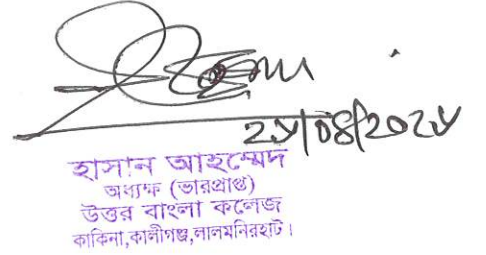 ২৫/০৪/২০২৫
হাসান আহম্মেদ
অধ্যক্ষ (ভারপ্রাপ্ত)
উত্তর বাংলা কলেজ
কাকিনা,কালীগঞ্জ,লালমনিরহাট।